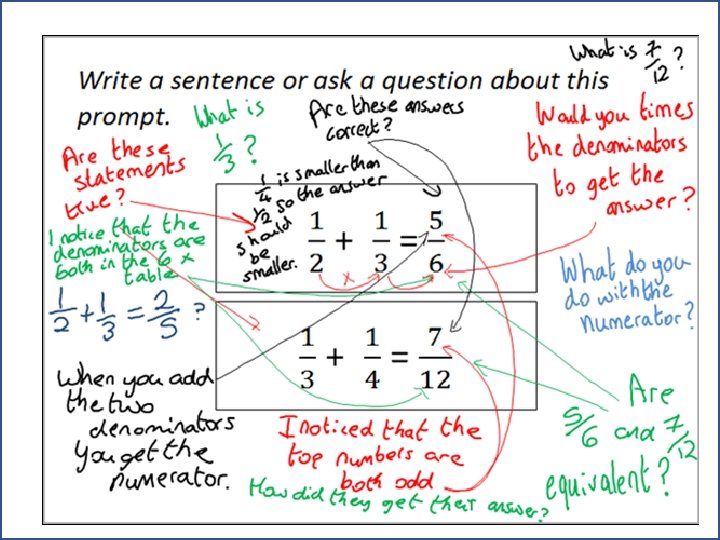 Write a sentence or ask a question about this
prompt.
What is 7/12?
What is
1/3?
Are these answers
correct?
Would you times
the denominators
to get the
answer?
Are these
statements
true?
1/4 is smaller than
1/2 so the answer
should
be
smaller.
I notice that the
denominators are
both in the 6 x
table
1/2 + 1/3 = 5/6
x
1/2 + 1/3 = 2/5 ?
What do you
do with the
numerator?
1/3 + 1/4 = 7/12
When you add
the two
denominators
you get the
numerator.
I noticed that the
top numbers are
both odd
Are
5/6 and 7/12
equivalent?
How did they get their answer?